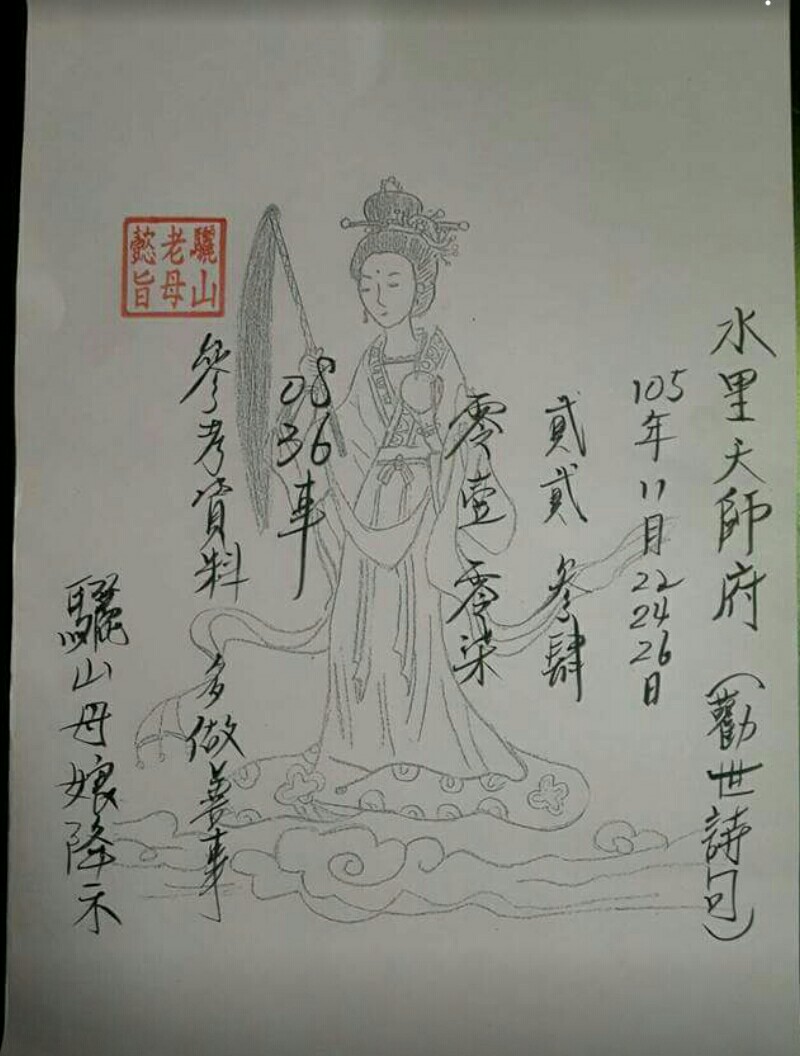 水里天師府（勸世詩句）
105年11月22 24 26日
貳貳 參肆
零壹 零柒
08 36車
參考資料 多做善事
驪山母娘降示
驪山老母懿旨